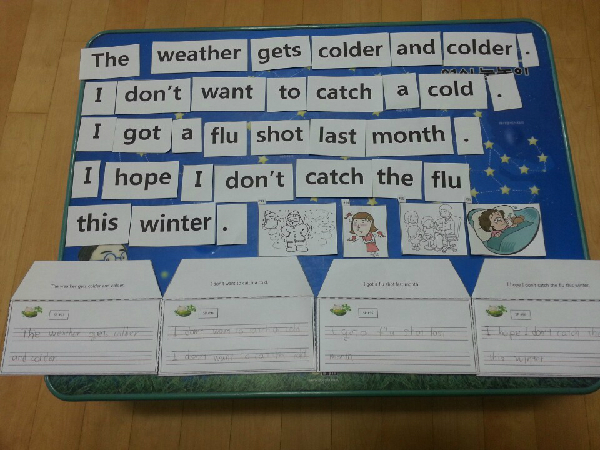 The weather gets colder and colder.
I don't want to catch a cold.
I got a flu shot last month.
I hope I don't catch the flu
this winter.
The weather gets colder and colder.
I don't want to catch a cold.
I got a flu shot last month.
I hope I don't catch the flu this winter.
The weather gets colder
and colder
I don't want to catch a cold
I don't want to catch a cold
I got a flu shot last
month
I hope I don't catch the
this winter